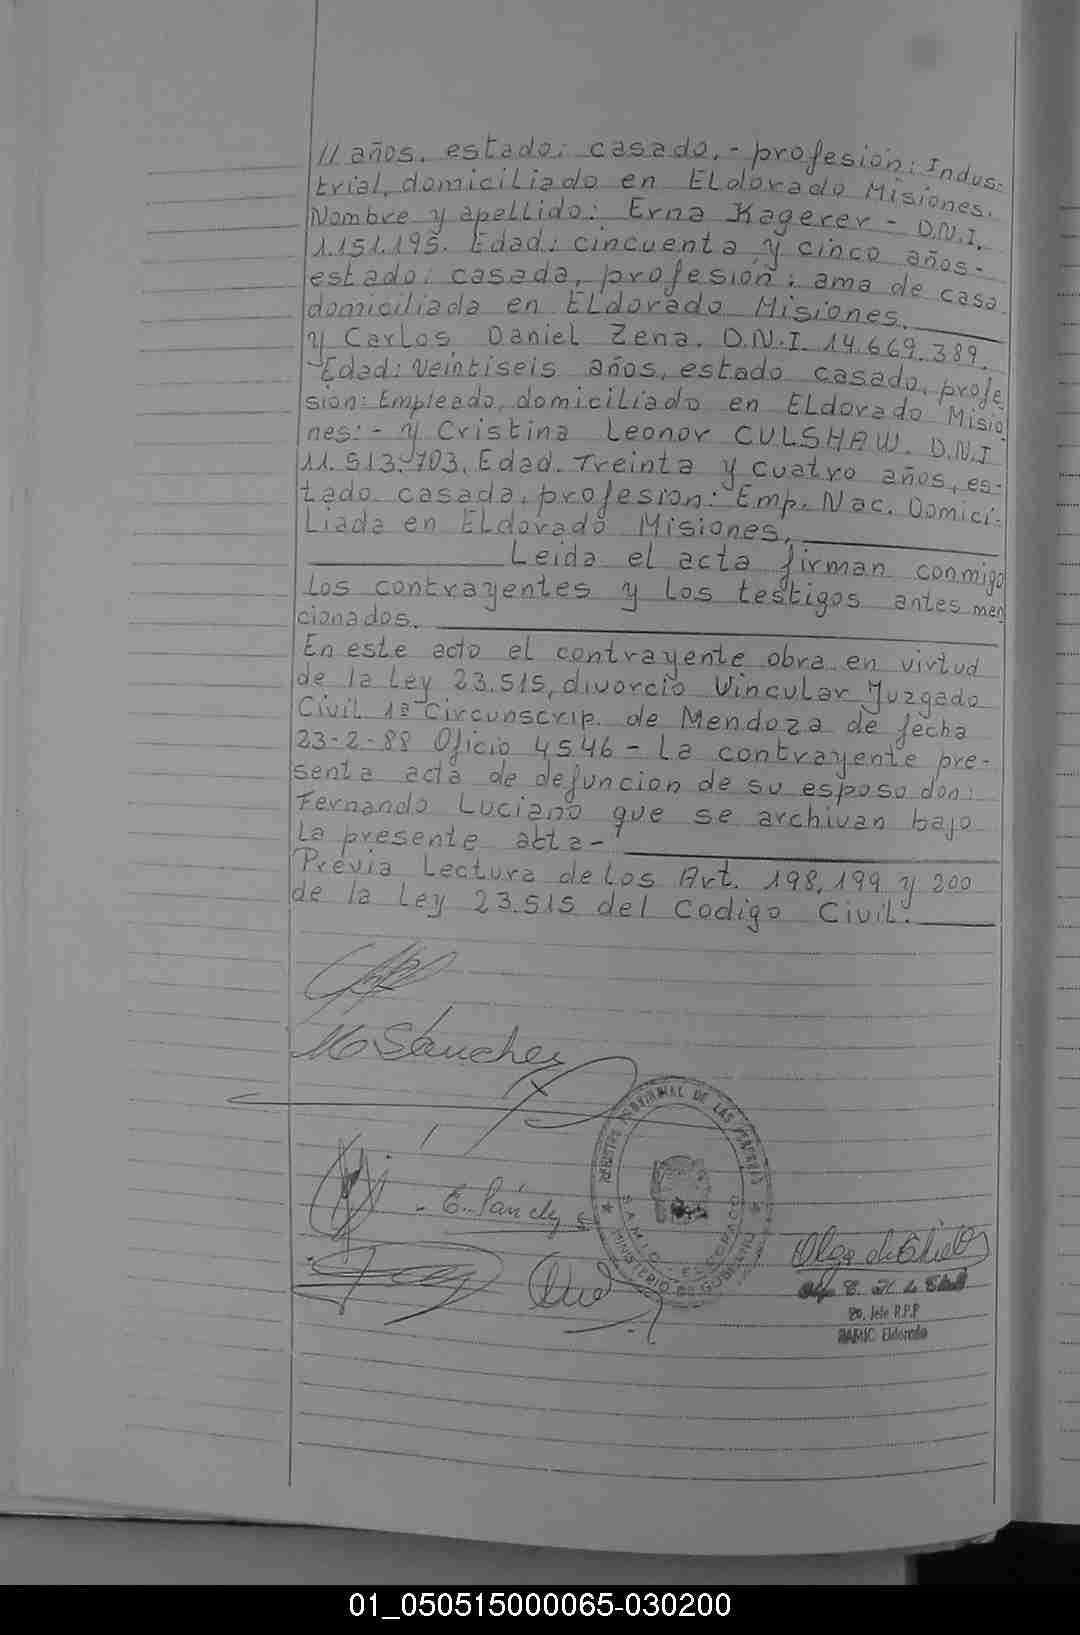 // años. estado: casado. - profesión: Indus-
trial, domiciliado en ELdorado Misiones.
Nombre y apellido: Erna Kagerer - D.N.I.
1.151.195. Edad: cincuenta y cinco años-
estado: casada, profesión: ama de casa
domiciliada en ELdorado Misiones.
y Carlos Daniel Zena. D.N.I. 14.669.389.
Edad: Veintiseis años, estado casado, profe
sión: Empleado, domiciliado en ELdorado Misio
nes: - y Cristina Leonor CULSHAW. D.N.I
11.513.703. Edad. Treinta y cuatro años, es-
tado casada, profesion: Emp. Nac. Domici-
Liada en ELdorado Misiones,
Leida el acta firman conmigo
Los contrayentes y Los testigos antes men
cionados.
En este acto el contrayente obra en virtud
de la Ley 23.515, divorcio Vincular Juzgado
Civil 1ª Circunscrip. de Mendoza de fecha
23-2-88 Oficio 4546 - La contrayente pre-
senta acta de defuncion de su esposo don:
Fernando Luciano que se archivan bajo
La presente acta -
Previa Lectura de Los Art. 198, 199 y 200
de la Ley 23.515 del Codigo Civil.
M Sánchez
REGISTRO PROVINCIAL DE LAS PERSONAS
MINISTERIO DE GOBIERNO
ELDORADO
2o. Jefe R.P.P
Eldorado
01_050515000065-030200